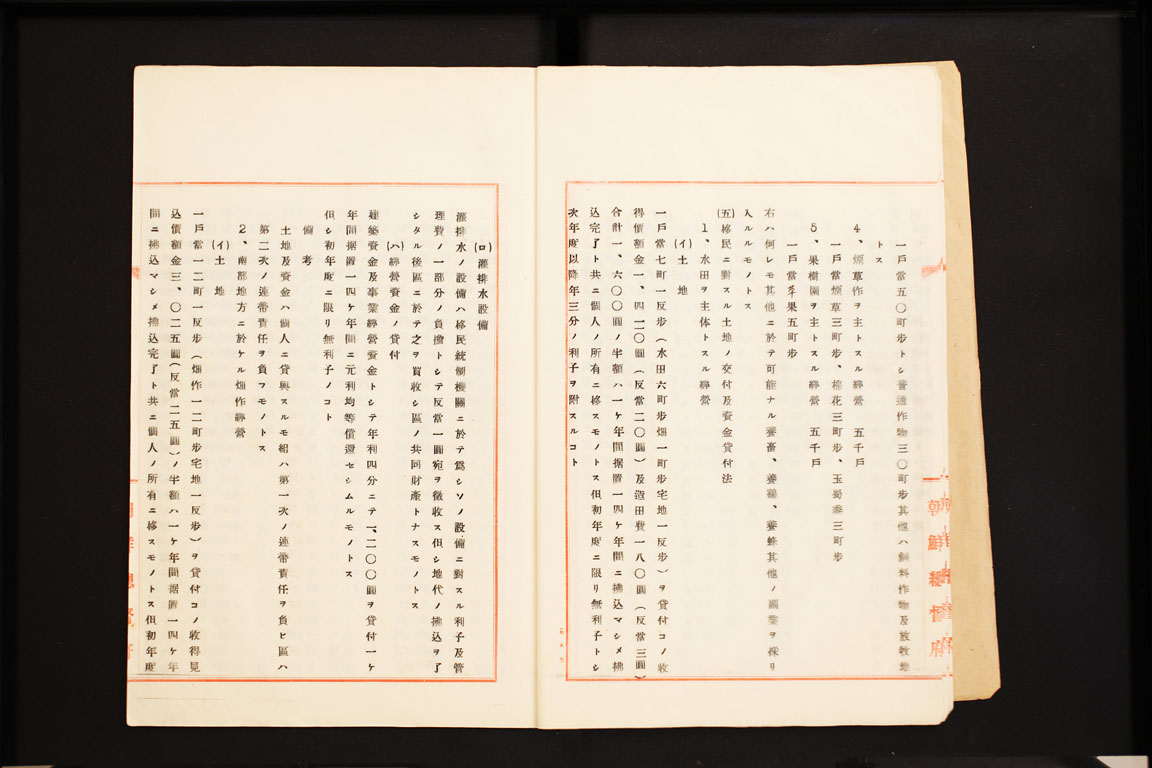 一戶當五〇町步トシ普通作物三〇町步其他ハ飼料作物及放牧地
トス
4、煙草作ヲ主トスル經營　五千戶
一戶當煙草三町步、棉花三町步、玉蜀黍三町步
5、果樹園ヲ主トスル經營　五千戶
一戶當苹果五町步
右ハ何レモ其他ニ於テ可能ナル養畜、養鷄、養蜂其他ノ副業ヲ採リ
入ルルモノトス
(五)移民ニ對スル土地ノ交付及資金貸付法
1、水田ヲ主体トスル經營
(イ)土　地
一戶當七町一反步（水田六町步畑一町步宅地一反步）ヲ貸付コノ收
得價額金一、四二〇圓（反當二〇圓）及造田費一八〇圓（反當三圓）
合計一、六〇〇圓ノ半額ハ一ケ年間据置一四ケ年間ニ拂込マシメ拂
込完了ト共ニ個人ノ所有ニ移スモノトス但初年度ニ限リ無利子トシ
次年度以降年三分ノ利子ヲ附スルコト
(ロ)灌排水設備
灌排水ノ設備ハ移民統制機關ニ於テ爲シソノ設備ニ對スル利子及管
理費ノ一部分ノ負擔トシテ反當一圓宛ヲ徵收ス但シ地代ノ拂込ヲ了
シタル後區ニ於テ之ヲ買收シ區ノ共同財產トナスモノトス
(ハ)經營資金ノ貸付
建築資金及事業經營資金トシテ年利四分ニテ一、二〇〇圓ヲ貸付一ケ
年間据置一四ケ年間ニ元利均等償還セシムルモノトス
但シ初年度ニ限リ無利子ノコト
備　考
土地及資金ハ個人ニ貸與スルモ組ハ第一次ノ連帶責任ヲ負ヒ區ハ
第二次ノ連帶責任ヲ負フモノトス
2、南部地方ニ於ケル畑作經營
(イ)土　地
一戶當一二町一反步（畑作一二町步宅地一反步）ヲ貸付コノ收得見
込價額金三、〇二五圓（反當二五圓）ノ半額ハ一ケ年間据置一四ケ年
間ニ拂込マシメ拂込完了ト共ニ個人ノ所有ニ移スモノトス但初年度
朝鮮總督府